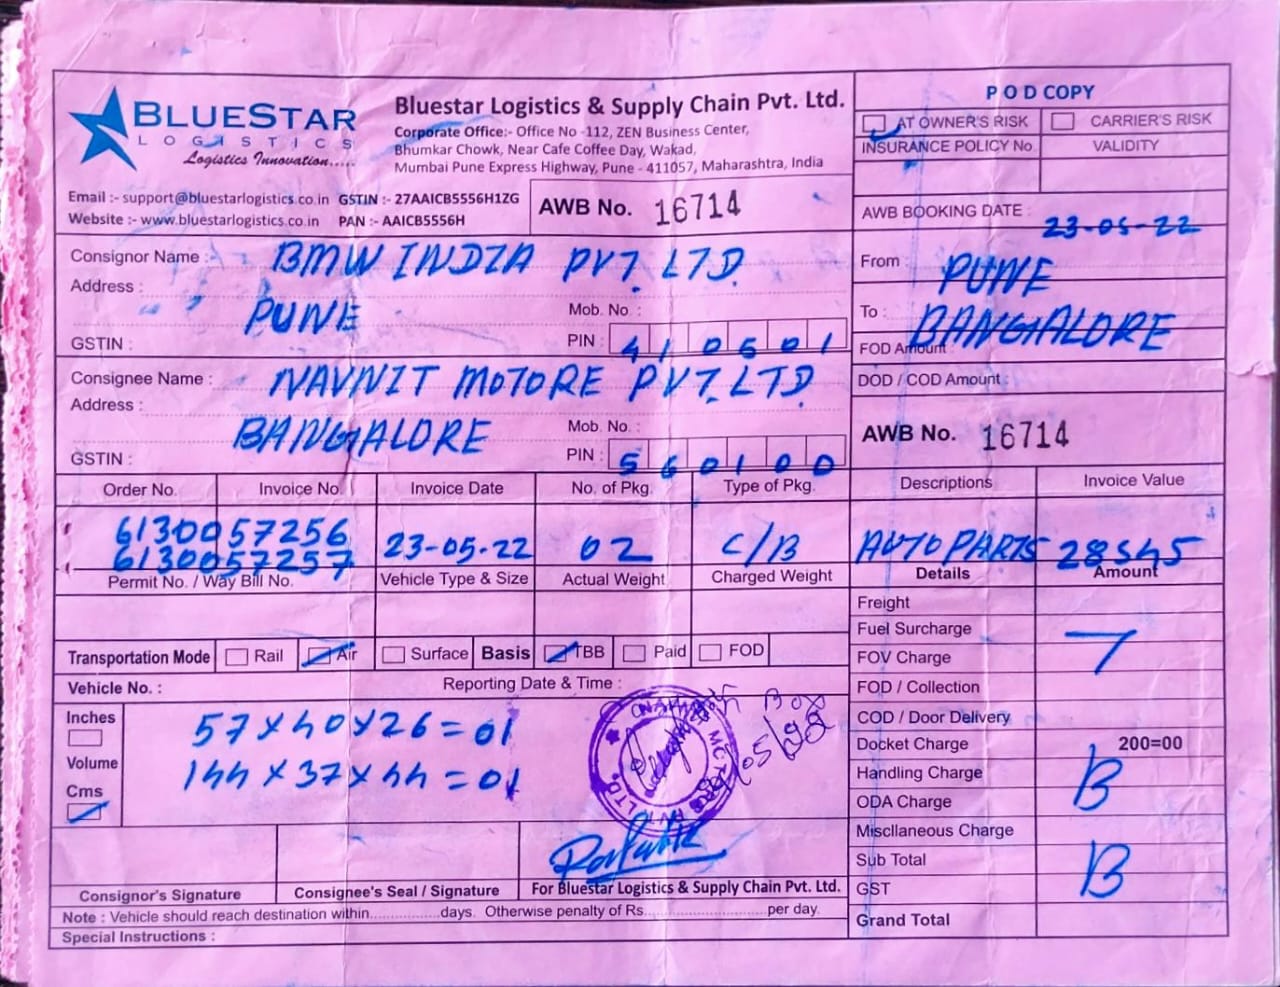 BLUESTAR
LOGISTICS
Logistics Innovation.....
Bluestar Logistics & Supply Chain Pvt. Ltd.
Corporate Office:- Office No -112, ZEN Business Center,
Bhumkar Chowk, Near Cafe Coffee Day, Wakad,
Mumbai Pune Express Highway, Pune - 411057, Maharashtra, India
Email :- support@bluestarlogistics.co.in GSTIN :- 27AAICB5556H1ZG
Website :- www.bluestarlogistics.co.in PAN :- AAICB5556H
AWB No. 16714
POD COPY
AT OWNER'S RISK CARRIER'S RISK
INSURANCE POLICY No. VALIDITY
AWB BOOKING DATE : 23-05-22
From : PUNE
To : BANGALORE
FOD Amount :
DOD / COD Amount :
AWB No. 16714
Consignor Name : BMW INDIA PVT. LTD.
Address : PUNE
Mob. No. :
GSTIN : PIN : 410501
Consignee Name : NAVNIT MOTORE PVT. LTD.
Address : BANGALORE
Mob. No. :
GSTIN : PIN : 560100
Order No. Invoice No. Invoice Date No. of Pkg. Type of Pkg. Descriptions Invoice Value
6130057256
6130057257 23-05-22 02 C/B AUTO PARTS 28545
Permit No. / Way Bill No. Vehicle Type & Size Actual Weight Charged Weight Details Amount
Transportation Mode Rail Air Surface Basis TBB Paid FOD
Vehicle No. : Reporting Date & Time :
Inches
Volume
Cms
57 X 40 X 26 = 01
144 X 37 X 44 = 01
BOX
Freight
Fuel Surcharge
FOV Charge
FOD / Collection
COD / Door Delivery
Docket Charge 200=00
Handling Charge
ODA Charge
Miscllaneous Charge
Sub Total
GST
Grand Total
T
B
B
Consignor's Signature Consignee's Seal / Signature For Bluestar Logistics & Supply Chain Pvt. Ltd.
Note : Vehicle should reach destination within.................days. Otherwise penalty of Rs.............................per day.
Special Instructions :